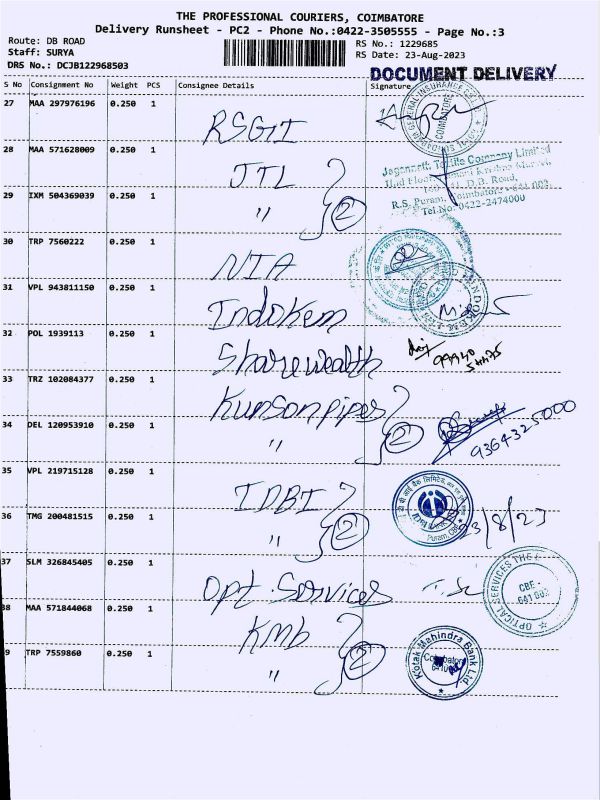 THE PROFESSIONAL COURIERS, COIMBATORE
Delivery Runsheet - PC2 - Phone No.:0422-3505555 - Page No.:3
Route: DB ROAD
Staff: SURYA
DRS No.: DCJB122968503
RS No.: 1229685
RS Date: 23-Aug-2023
DOCUMENT DELIVERY
S No Consignment No Weight PCS Consignee Details Signature
27 MAA 297976196 0.250 1 RSGII
COIMBATORE
28 MAA 571628009 0.250 1 JTL
Jagannath Textile Company Limited
D.B. Road,
R.S. Puram, Coimbatore - 641 002.
Tel.No: 0422-2474000
29 IXM 504369039 0.250 1 " 2
30 TRP 7560222 0.250 1 NIA
31 VPL 943811150 0.250 1 Indokem
32 POL 1939113 0.250 1 Sharewealth
33 TRZ 102084377 0.250 1 Kunsonpipes
34 DEL 120953910 0.250 1 " 2
9364325000
35 VPL 219715128 0.250 1 IDBI
36 TMG 200481515 0.250 1 " 2
23/8/23
37 SLM 326845405 0.250 1 Opt. Services
OPTICAL SERVICES
CBE -
641 002
38 MAA 571844068 0.250 1 KMB
Kotak Mahindra Bank Ltd.
Coimbatore
9 TRP 7559860 0.250 1 " 2